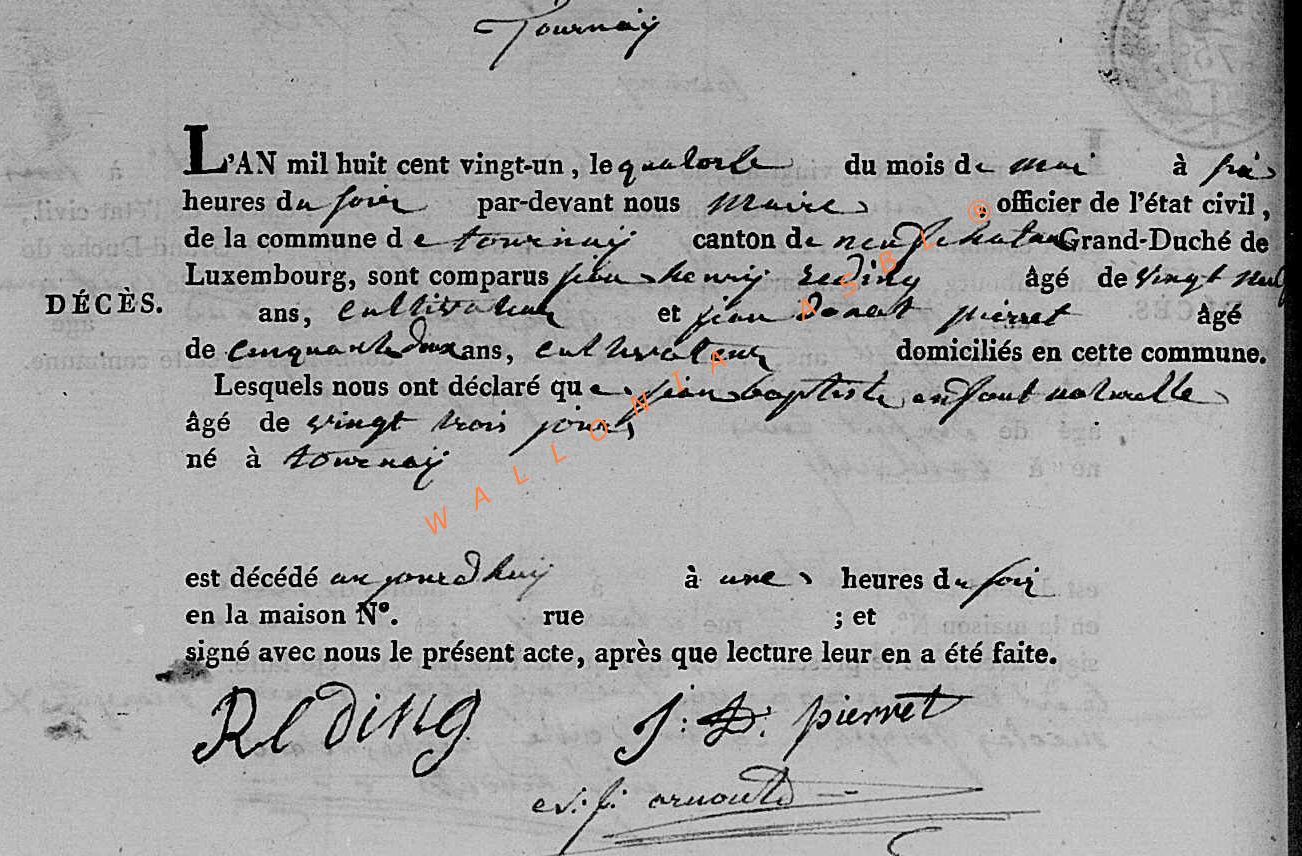 Tournay
L'AN mil huit cent vingt-un, le quatorse du mois de mai à
heures du soir par-devant nous maire, officier de l'état civil,
de la commune de tournay canton de neufchateau Grand-Duché de
Luxembourg, sont comparus jean henry reding âgé de vingt neuf
DÉCÈS.
ans, cultivateur et jean donat pierret âgé
de cinquante deux ans, cultivateur domiciliés en cette commune.
Lesquels nous ont déclaré que jean baptiste enfant naturelle
âgé de vingt trois jours
né à tournay
WALLONIA ASBL ®
est décédé aujourdhuy à une heures du soir
en la maison N°. rue ; et
signé avec nous le présent acte, après que lecture leur en a été faite.
Reding J: D: pierret
arnould